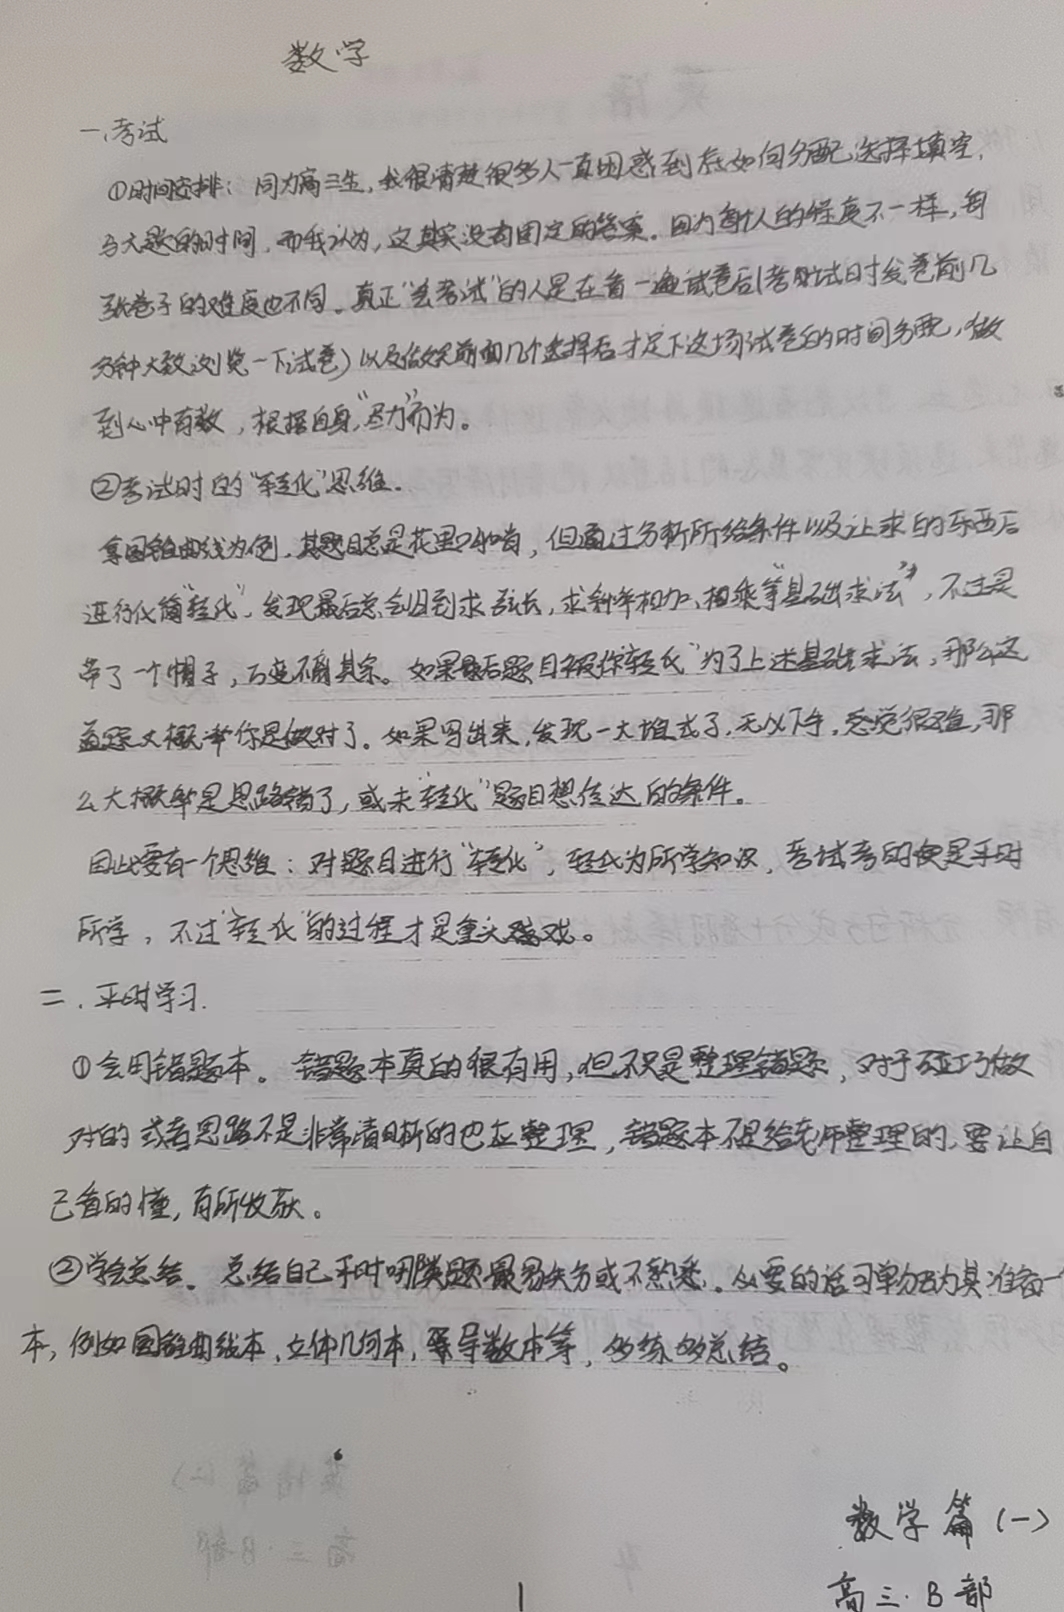 数学
一.考试
①时间安排：同为高三生，我很清楚很多人一直困惑到底如何分配选择填空，
与大题的时间，而我认为，这其实没有固定的答案。因为每个人的程度不一样，每
张卷子的难度也不同。真正“会考试”的人是在看一遍试卷后(考试时发卷前几
分钟大致浏览一下试卷)以及做完前面几个选择后才定下这场试卷的时间分配，做
到心中有数，根据自身，“尽力”而为。
②考试时的“转化”思维.
拿圆锥曲线为例，其题目总是花里胡哨，但通过分析所给条件以及让求的东西后
进行化简“转化”，发现最后总会归到求弦长，求斜率相加、相乘等“基础求法”，不过是
带了一个帽子，万变不离其宗。如果最后题目被你“转化”为了上述基础求法，那么这
道题大概率你是做对了。如果写出来，发现一大堆式子，无从下手，感觉很难，那
么大概率是思路错了，或未“转化”题目想传达的条件。
因此要有一个思维：对题目进行“转化”，转化为所学知识，考试考的便是平时
所学，不过“转化”的过程才是重头戏。
二.平时学习.
①会用错题本。错题本真的很有用，但不只是整理错题，对于碰巧做
对的或者思路不是非常清晰的也应整理，错题本不是给老师整理的，要让自
己看的懂，有所收获。
②学会总结。总结自己平时哪类题最易失分或不熟悉。必要的话可单独为其准备一
本，例如圆锥曲线本、立体几何本，导数本等，多练多总结。
数学篇(一)
1
高三·B部